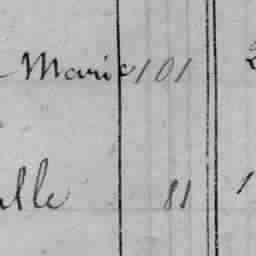 Marie 101
lle 81